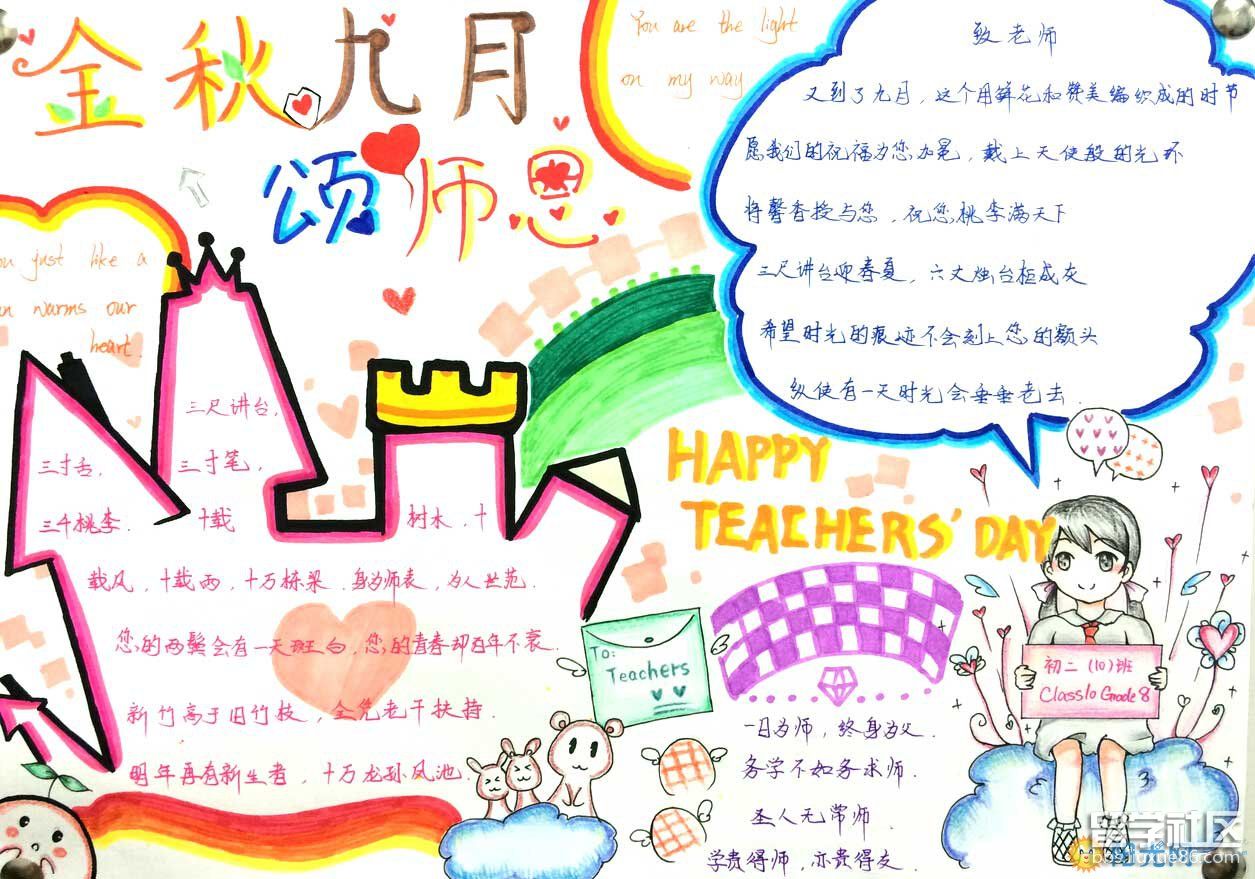 金秋九月
颂师恩
You are the light
on my way
致老师
又到了九月，这个用鲜花和赞美编织成的时节
愿我们的祝福为您加冕，戴上天使般的光环
将馨香授与您，祝您桃李满天下
三尺讲台迎春夏，六丈烛台柜成灰
希望时光的痕迹不会刻上您的额头
纵使有一天时光会垂垂老去.
ou just like a
warms our
heart.
三尺讲台，
三寸舌，
三寸笔，
三千桃李.
十载
树木，十
载风，十载雨，十万栋梁.身为师表，为人世范.
您的两鬓会有一天斑白，您的青春却百年不衰.
新竹高于旧竹枝，全凭老干扶持.
明年再有新生者，十万龙孙凤池.
HAPPY
TEACHERS' DAY
To:
Teachers
初二 (10) 班
Class10 Grade 8
一日为师，终身为父.
务学不如务求师.
圣人无常师.
学贵得师，亦贵得友.
留学社区
bbs.liuxue86.com